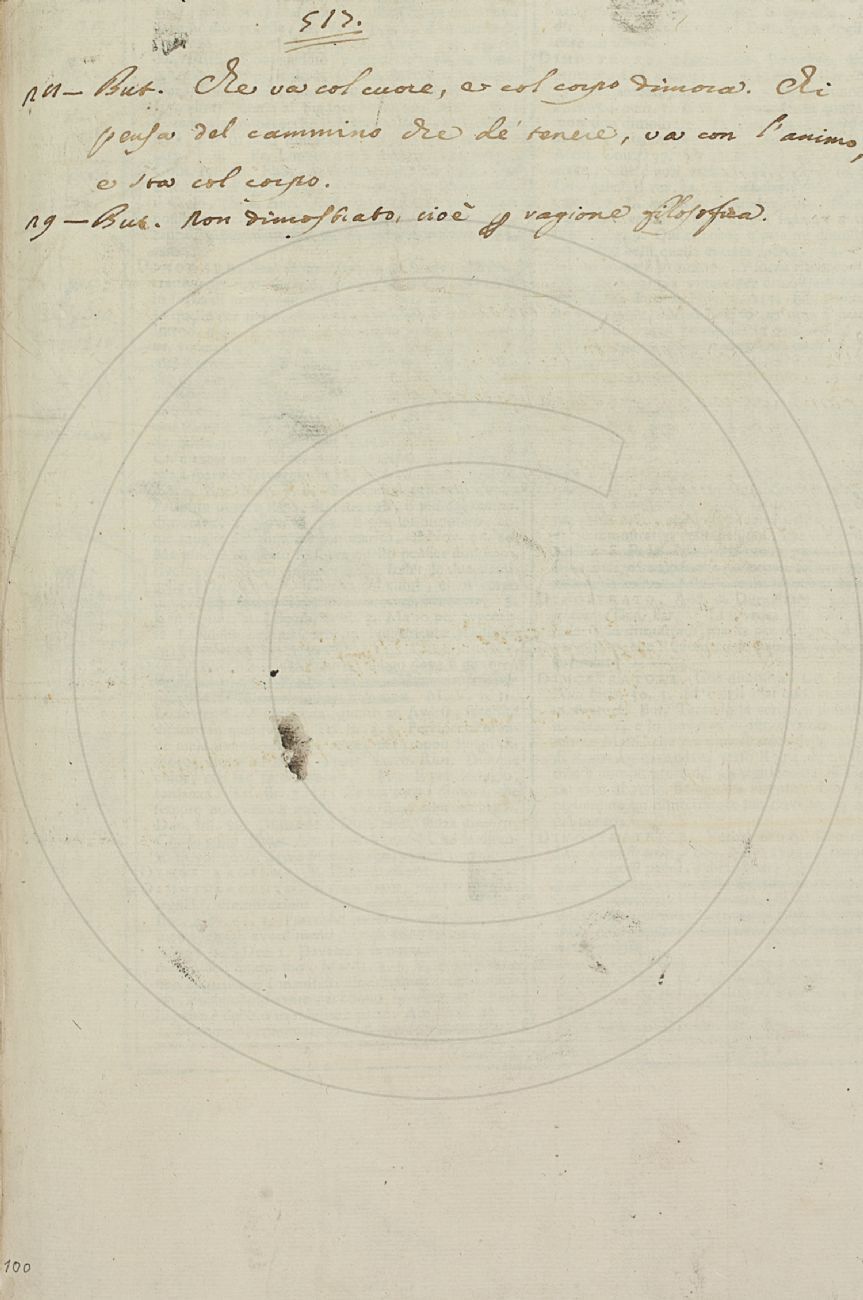 517.
28 — But. Che va col cuore, e col corpo dimora. Chi
pensa del cammino che de' tenere, va con l'animo,
e sta col corpo.
29 — But. Non dimostrato, cioè ragione filosofica.
100